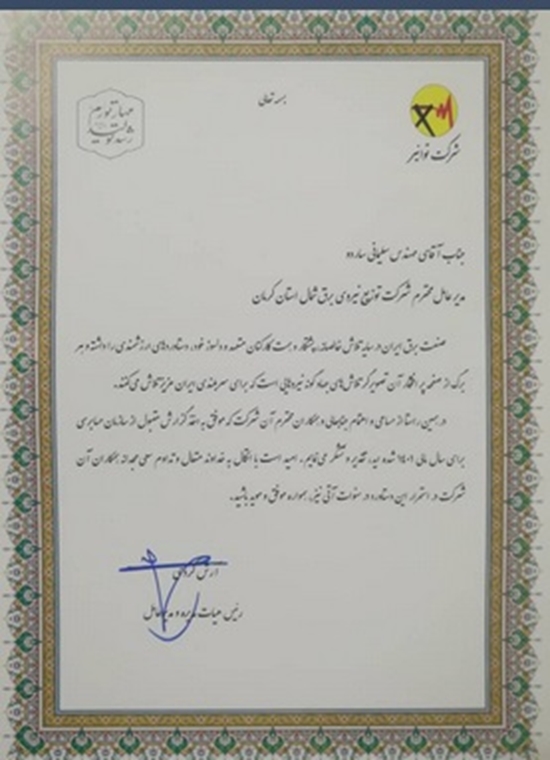 بسمه تعالی
مهار تورم
رشد تولید
شرکت توانیر
جناب آقای مهندس سلیمانی ساردو
مدیر عامل محترم شرکت توزیع نیروی برق شمال استان کرمان
صنعت برق ایران در سایه تلاش خالصانه، پشتکار و همت کارکنان متعهد و دلسوز خود، دستاوردهای ارزشمندی را داشته و هر
برگ از صفحه پر افتخار آن تصویرگر تلاش‌های جهادگونه نیروهایی است که برای سربلندی ایران عزیز تلاش می‌کنند.
در همین راستا از مساعی و اهتمام جنابعالی و همکاران محترم آن شرکت که موفق به اخذ گزارش مقبول از سازمان حسابرسی
برای سال مالی ۱۴۰۱ شده‌اید، تقدیر و تشکر می‌نمایم. امید است با اتکال به خداوند متعال و تداوم سعی مجدانه همکاران آن
شرکت در استمرار این دستاورد در سنوات آتی نیز، همواره موفق و موید باشید.
آرش کردی
رئیس هیات مدیره و مدیرعامل